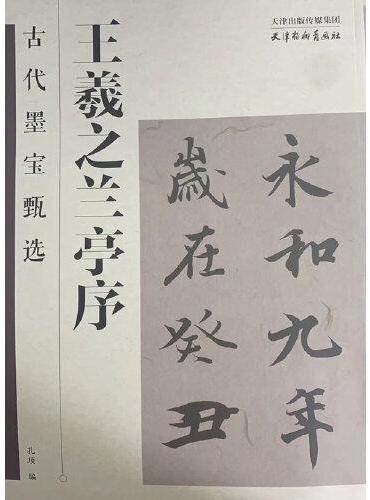 天津出版传媒集团
天津杨柳青画社
永和九年
歲在癸丑
王羲之兰亭序
古代墨宝甄选
孔瑛 编